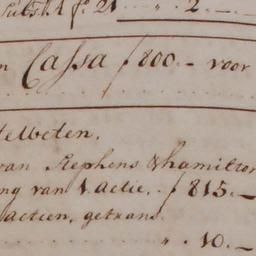 ƒ 21 " . 2 . —
n Cassa ƒ 800.- voor
van Stephens & hamilton
ng van 1 actie, ƒ 815.—
actien, getrans
" . 10.—